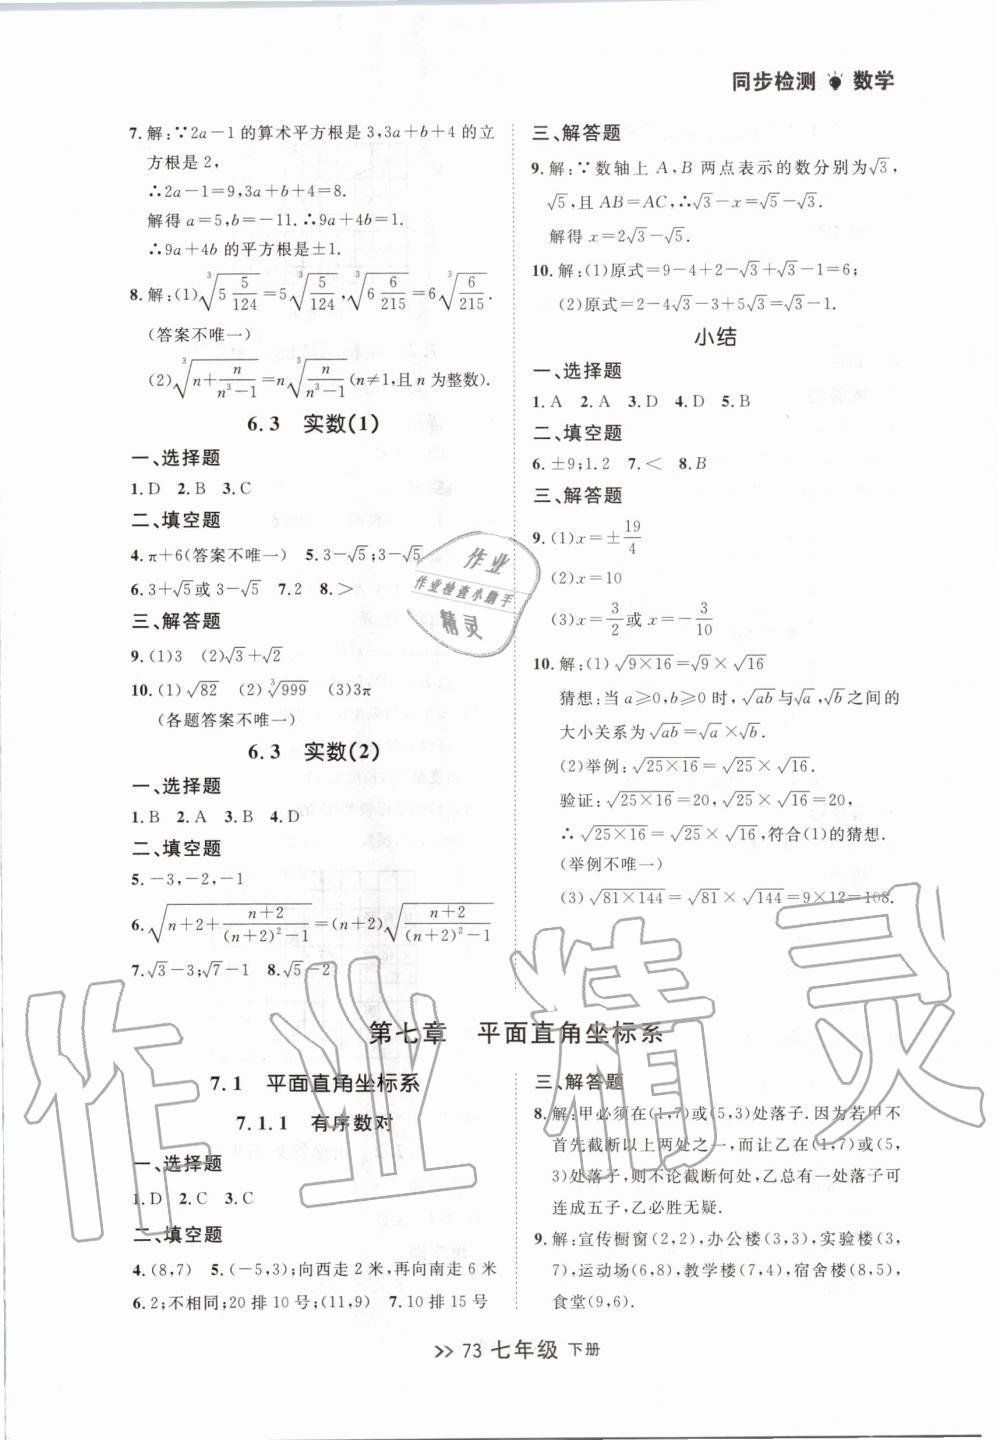 同步检测 数学
7.解:∵2a-1的算术平方根是3,3a+b+4的立
方根是2,
∴2a-1=9,3a+b+4=8.
解得a=5,b=-11.∴9a+4b=1.
∴9a+4b的平方根是±1.
8.解:(1)∛(5 5/124)=5∛(5/124),∛(6 6/215)=6∛(6/215).
(答案不唯一)
(2)∛(n+n/(n³-1))=n∛(n/(n³-1))(n≠1,且n为整数).
6.3 实数(1)
一、选择题
1.D 2.B 3.C
二、填空题
4.π+6(答案不唯一) 5.3-√5;3-√5
6.3+√5或3-√5 7.2 8.>
三、解答题
9.(1)3 (2)√3+√2
10.(1)√82 (2)∛999 (3)3π
(各题答案不唯一)
6.3 实数(2)
一、选择题
1.B 2.A 3.B 4.D
二、填空题
5.-3,-2,-1
6.√(n+2+(n+2)/((n+2)²-1))=(n+2)√((n+2)/((n+2)²-1))
7.√3-3;√7-1 8.√5-2
三、解答题
9.解:∵数轴上A,B两点表示的数分别为√3,
√5,且AB=AC,∴√3-x=√5-√3.
解得x=2√3-√5.
10.解:(1)原式=9-4+2-√3+√3-1=6;
(2)原式=2-4√3-3+5√3=√3-1.
小结
一、选择题
1.A 2.A 3.D 4.D 5.B
二、填空题
6.±9;1.2 7.< 8.B
三、解答题
9.(1)x=±19/4
(2)x=10
(3)x=3/2或x=-3/10
10.解:(1)√(9×16)=√9×√16
猜想:当a≥0,b≥0时,√ab与√a,√b之间的
大小关系为√ab=√a×√b.
(2)举例:√(25×16)=√25×√16.
验证:√(25×16)=20,√25×√16=20,
∴√(25×16)=√25×√16,符合(1)的猜想.
(举例不唯一)
(3)√(81×144)=√81×√144=9×12=108.
作业
作业检查小助手
精灵
作业精灵
第七章 平面直角坐标系
7.1 平面直角坐标系
7.1.1 有序数对
一、选择题
1.D 2.C 3.C
二、填空题
4.(8,7) 5.(-5,3);向西走2米,再向南走6米
6.2;不相同;20排10号;(11,9) 7.10排15号
三、解答题
8.解:甲必须在(1,7)或(5,3)处落子.因为若甲不
首先截断以上两处之一,而让乙在(1,7)或(5,
3)处落子,则不论截断何处,乙总有一处落子可
连成五子,乙必胜无疑.
9.解:宣传橱窗(2,2),办公楼(3,3),实验楼(3,
7),运动场(6,8),教学楼(7,4),宿舍楼(8,5),
食堂(9,6).
>> 73 七年级 下册